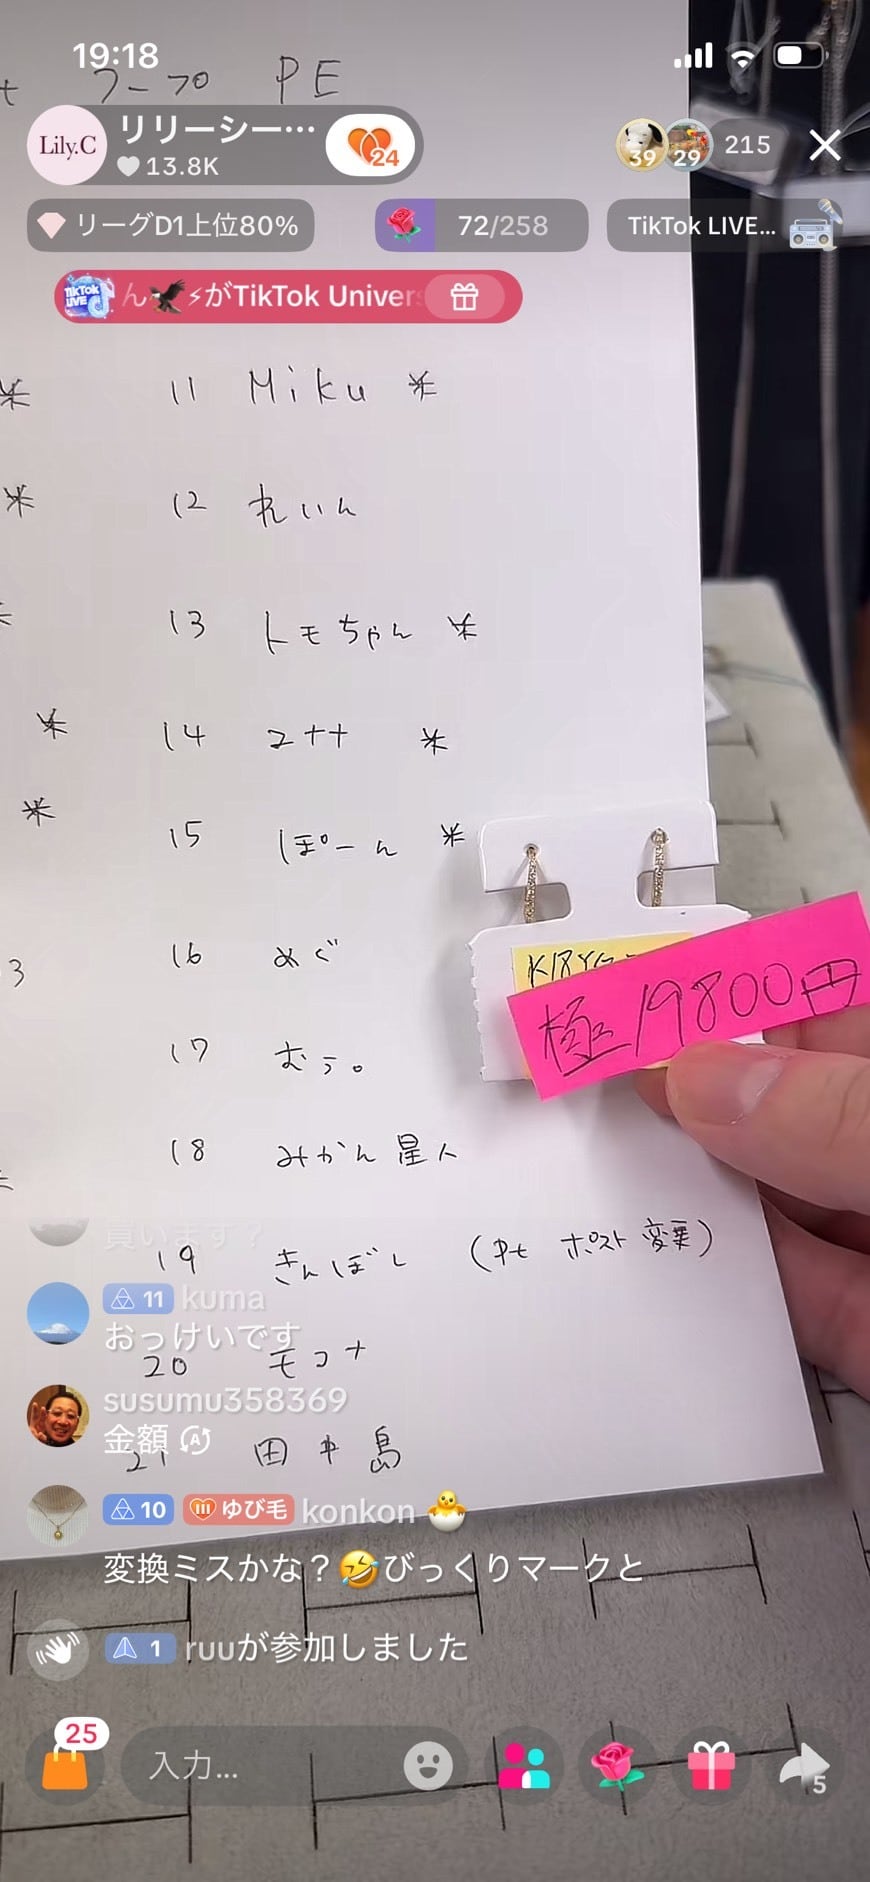 19:18
フープ PE
Lily.C
リリーシー…
13.8K
24
39
29
215
リーグD1上位80%
72/258
TikTok LIVE…
TikTok LIVE
ん
⚡がTikTok Univer
11 Miku ※
12 れいん
13 トモちゃん ※
14 ※
15 ぽーん ※
16 めぐ
3
K18YG
極 19800円
17 むぅ。
18 みかん星人
買います?
19 きんぼし (Pt ポスト変更)
11 kuma
おっけいです
20 モコナ
susumu358369
金額
21 田中島
10 ゆび毛 konkon 🐣
変換ミスかな?🤣びっくりマークと
1 ruuが参加しました
25
入力...
5